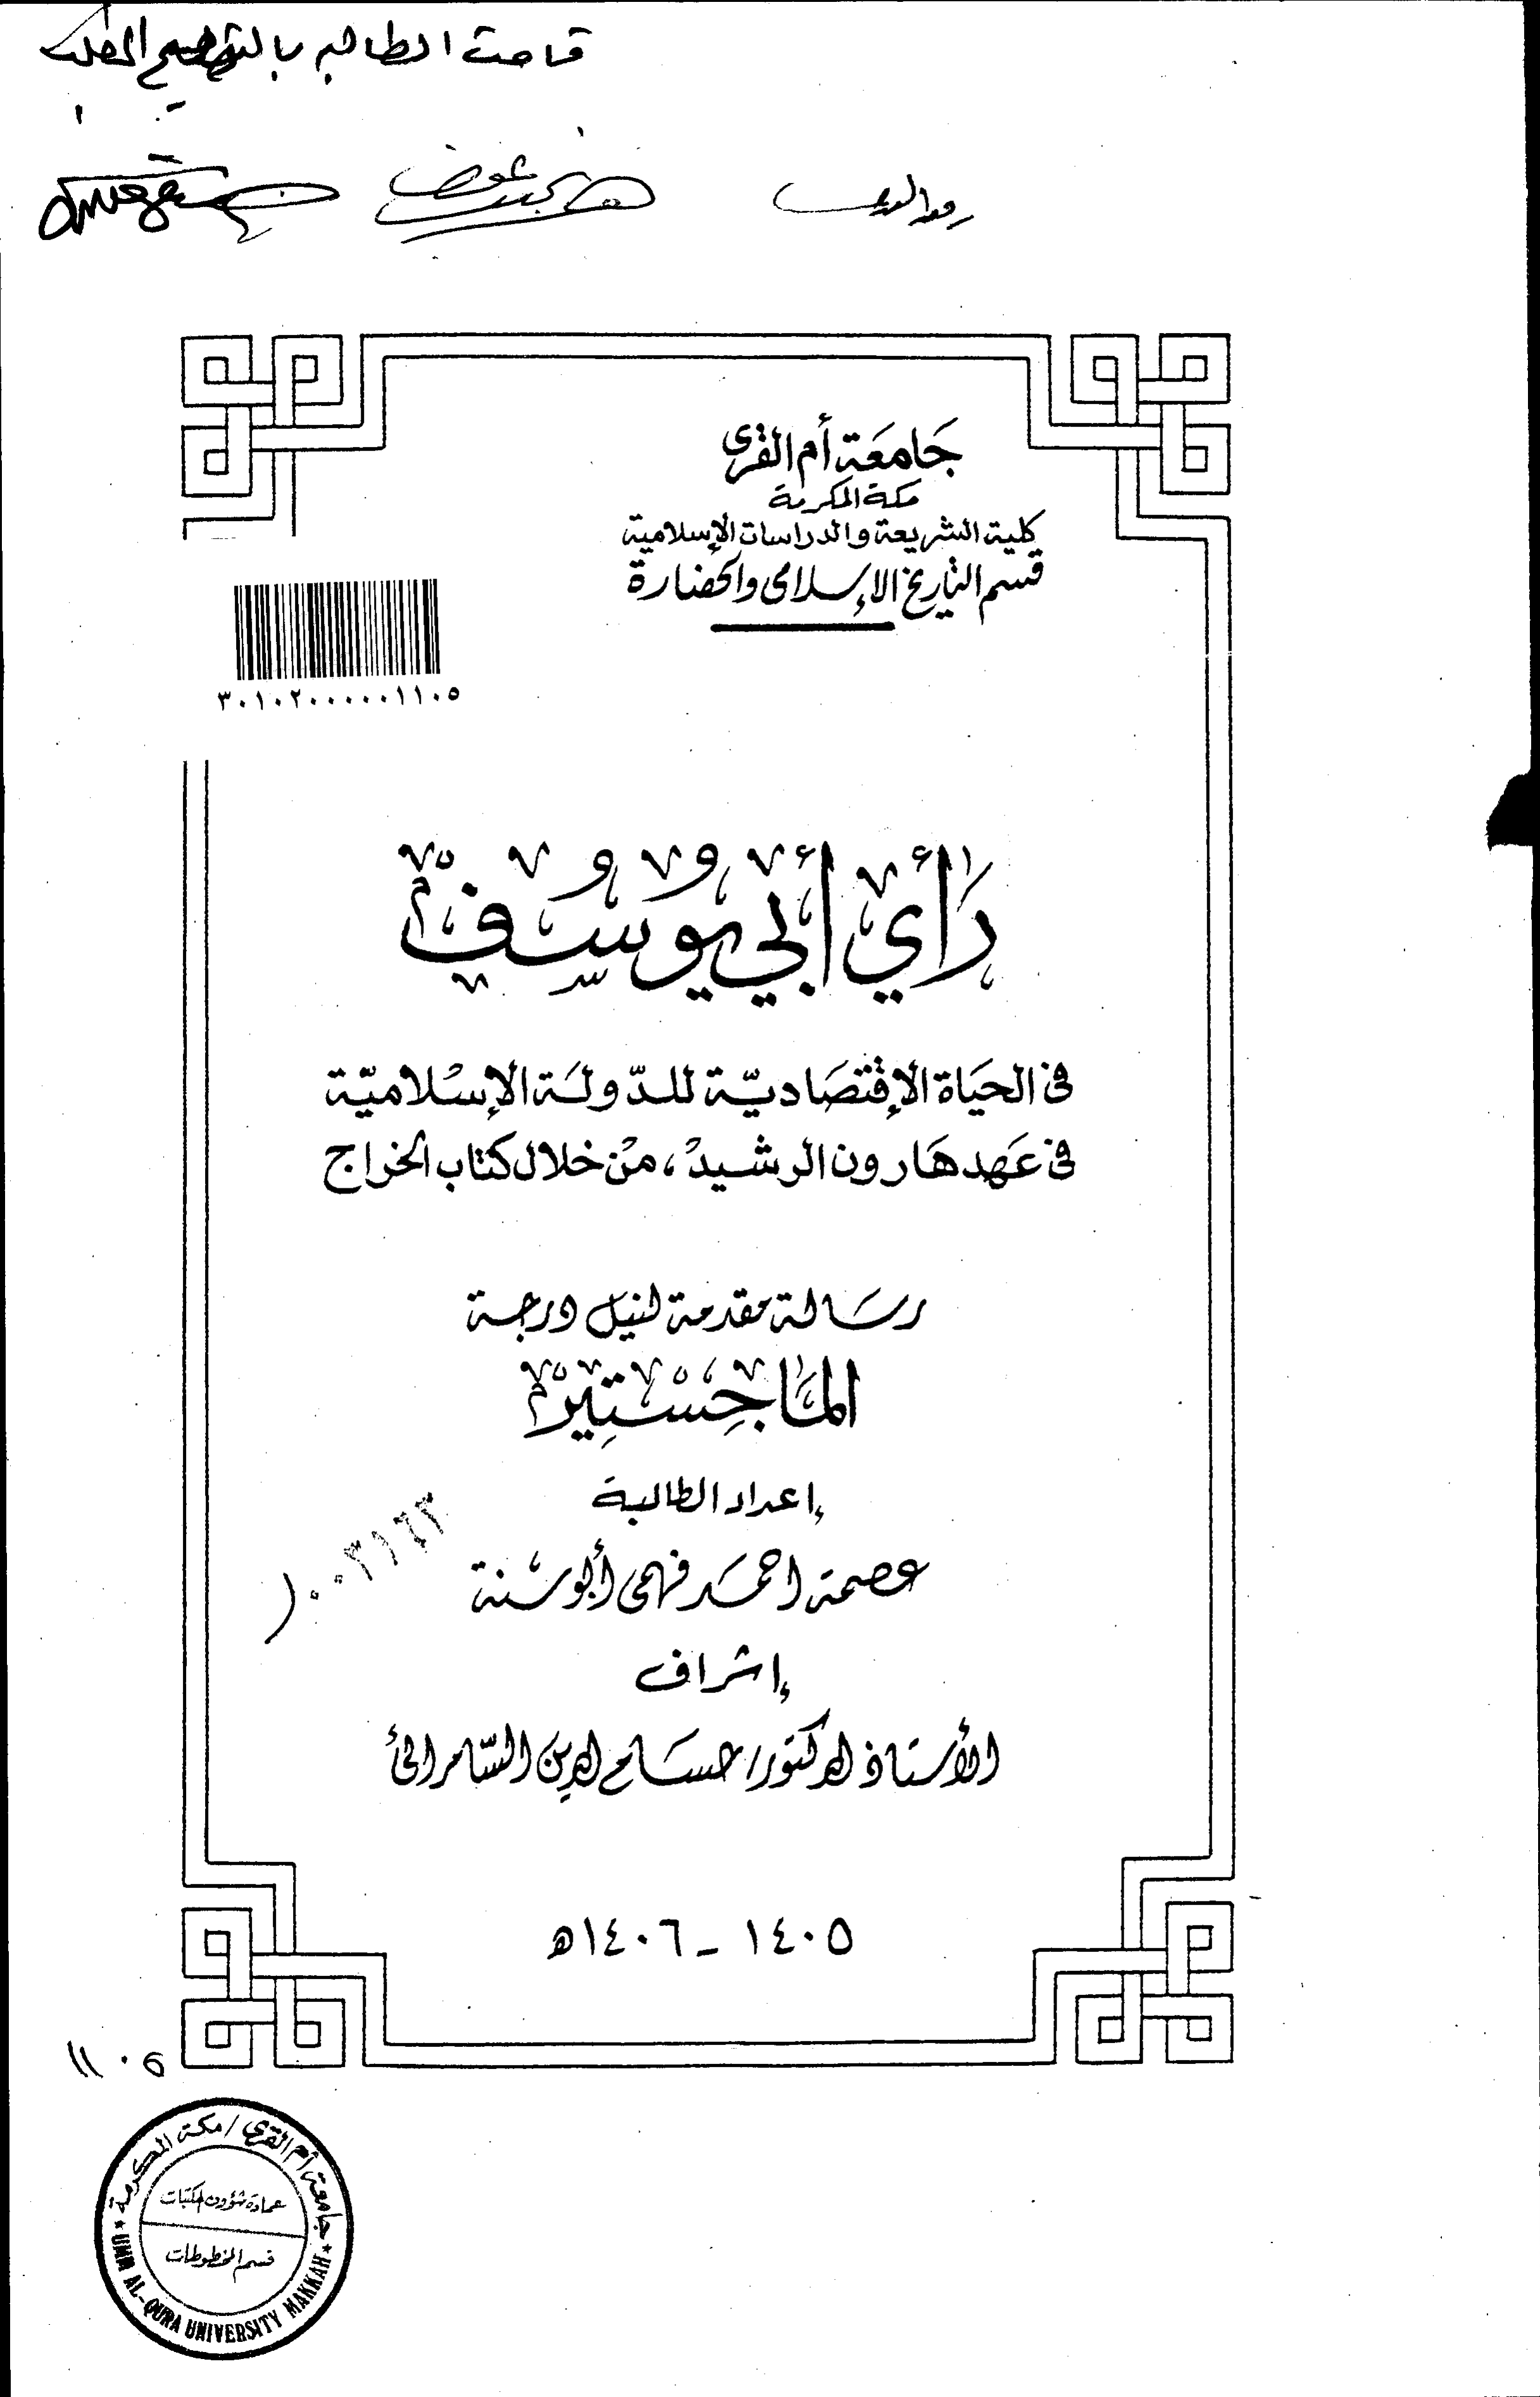 قامت الطالبه بالتصحيح المطلوب
جَامعَة أم القرى
مكة المكرمة
كلية الشريعة والدراسات الإسلامية
قسم التاريخ الإسلامى والحضارة
٣٠١٠٢٠٠٠٠٠١١٠٥
رَأي أبي يوسُف
فى الحَيَاة الإقتصَاديّة للدّولَة الإسْلاميّة
فى عَهد هَارون الرشيدْ، منْ خلال كتاب الخراج
رسَالة مقدمة لنيل درجة
المَاجِسْتِيرْ
إعداد الطالبة
عصمة احمَد فهمى أبو سْنة
١٠٠٣١٦٣
إشراف
الأستاذ الدكتور/ حسَام الدين السّامرائى
١٤٠٥ - ١٤٠٦ه
١١٠٥
جامعة أم القرى / مكة المكرمة
عمادة شؤون المكتبات
قسم المخطوطات
* UMM AL-QURA UNIVERSITY MAKKAH *